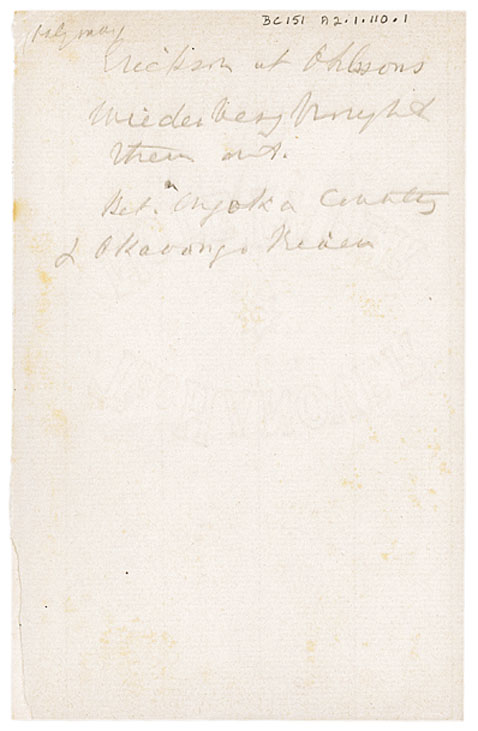 BC151 A2.1.110.1
Erickson at Ohlssons
Wiederberg brought
them out.
Bet. County
& Okavongo River